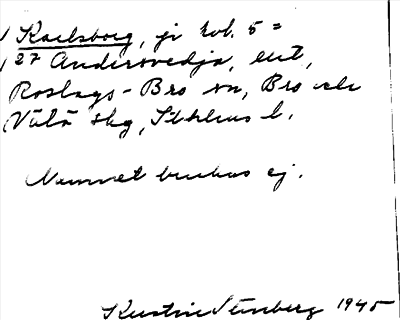 Karlsborg, jr kvl. 5 =
27 Andersvedja, enl,
Roslags-Bro sn, Bro och
Vätö skg, Sthlms l.
Namnet brukas ej.
Kerstin Stenberg 1945